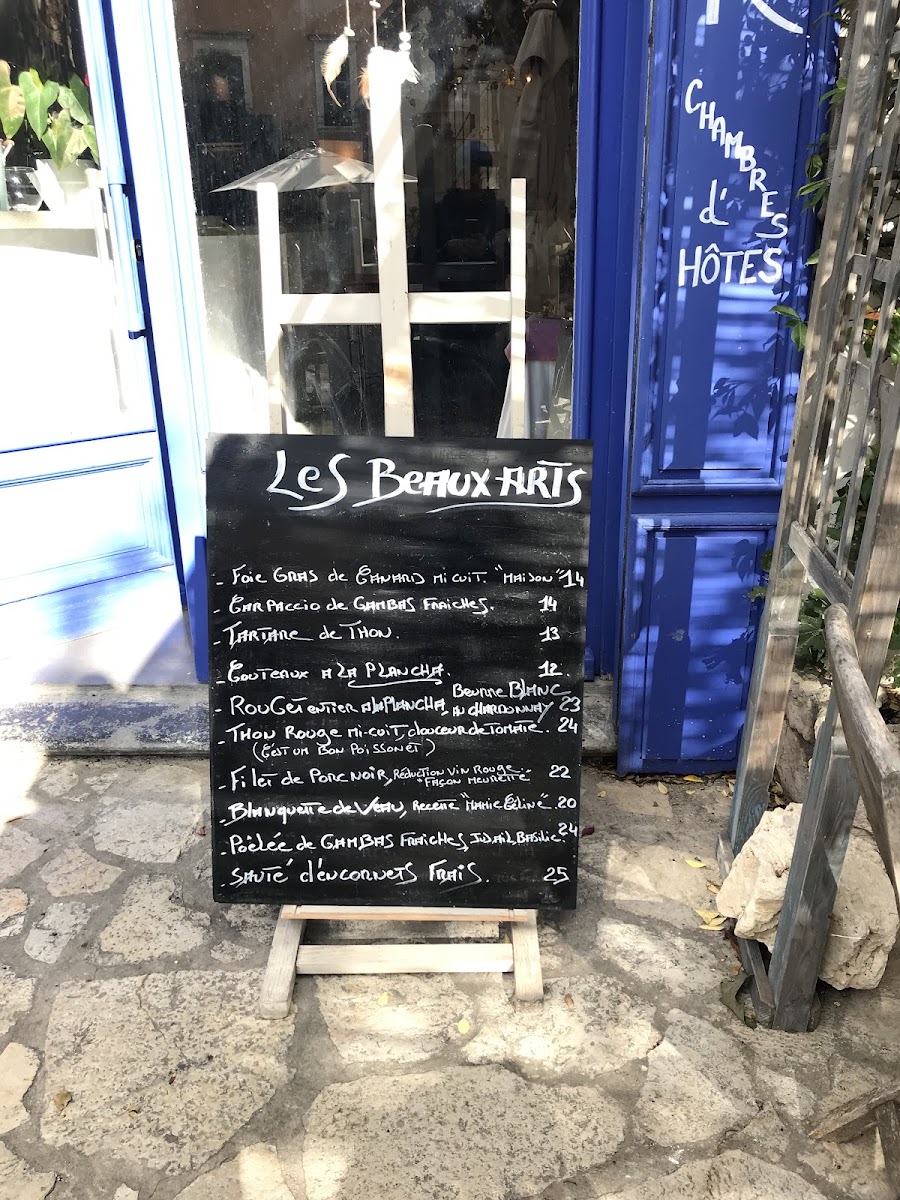 CHAMBRES
d'
HÔTES
Les Beaux Arts
- Foie Gras de Canard mi cuit. "Maison" 14
- Carpaccio de Gambas Fraiches. 14
- Tartare de Thon. 13
- Couteaux a la Plancha. 12.
- Rouget entier a la Plancha, Beurre Blanc au Chardonnay 23
- Thon Rouge mi-cuit, douceur de Tomate. 24
(C'est un bon poisson et)
- Filet de Porc noir, Réduction vin rouge "Façon meurette" 22
- Blanquette de Veau, Recette "Mamie Céline". 20
- Poêlée de Gambas Fraiches, Jus Ail Basilic. 24
- Sauté d'encornets Frais. 25